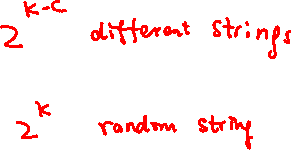 2^{k-c} different strings
2^k random string